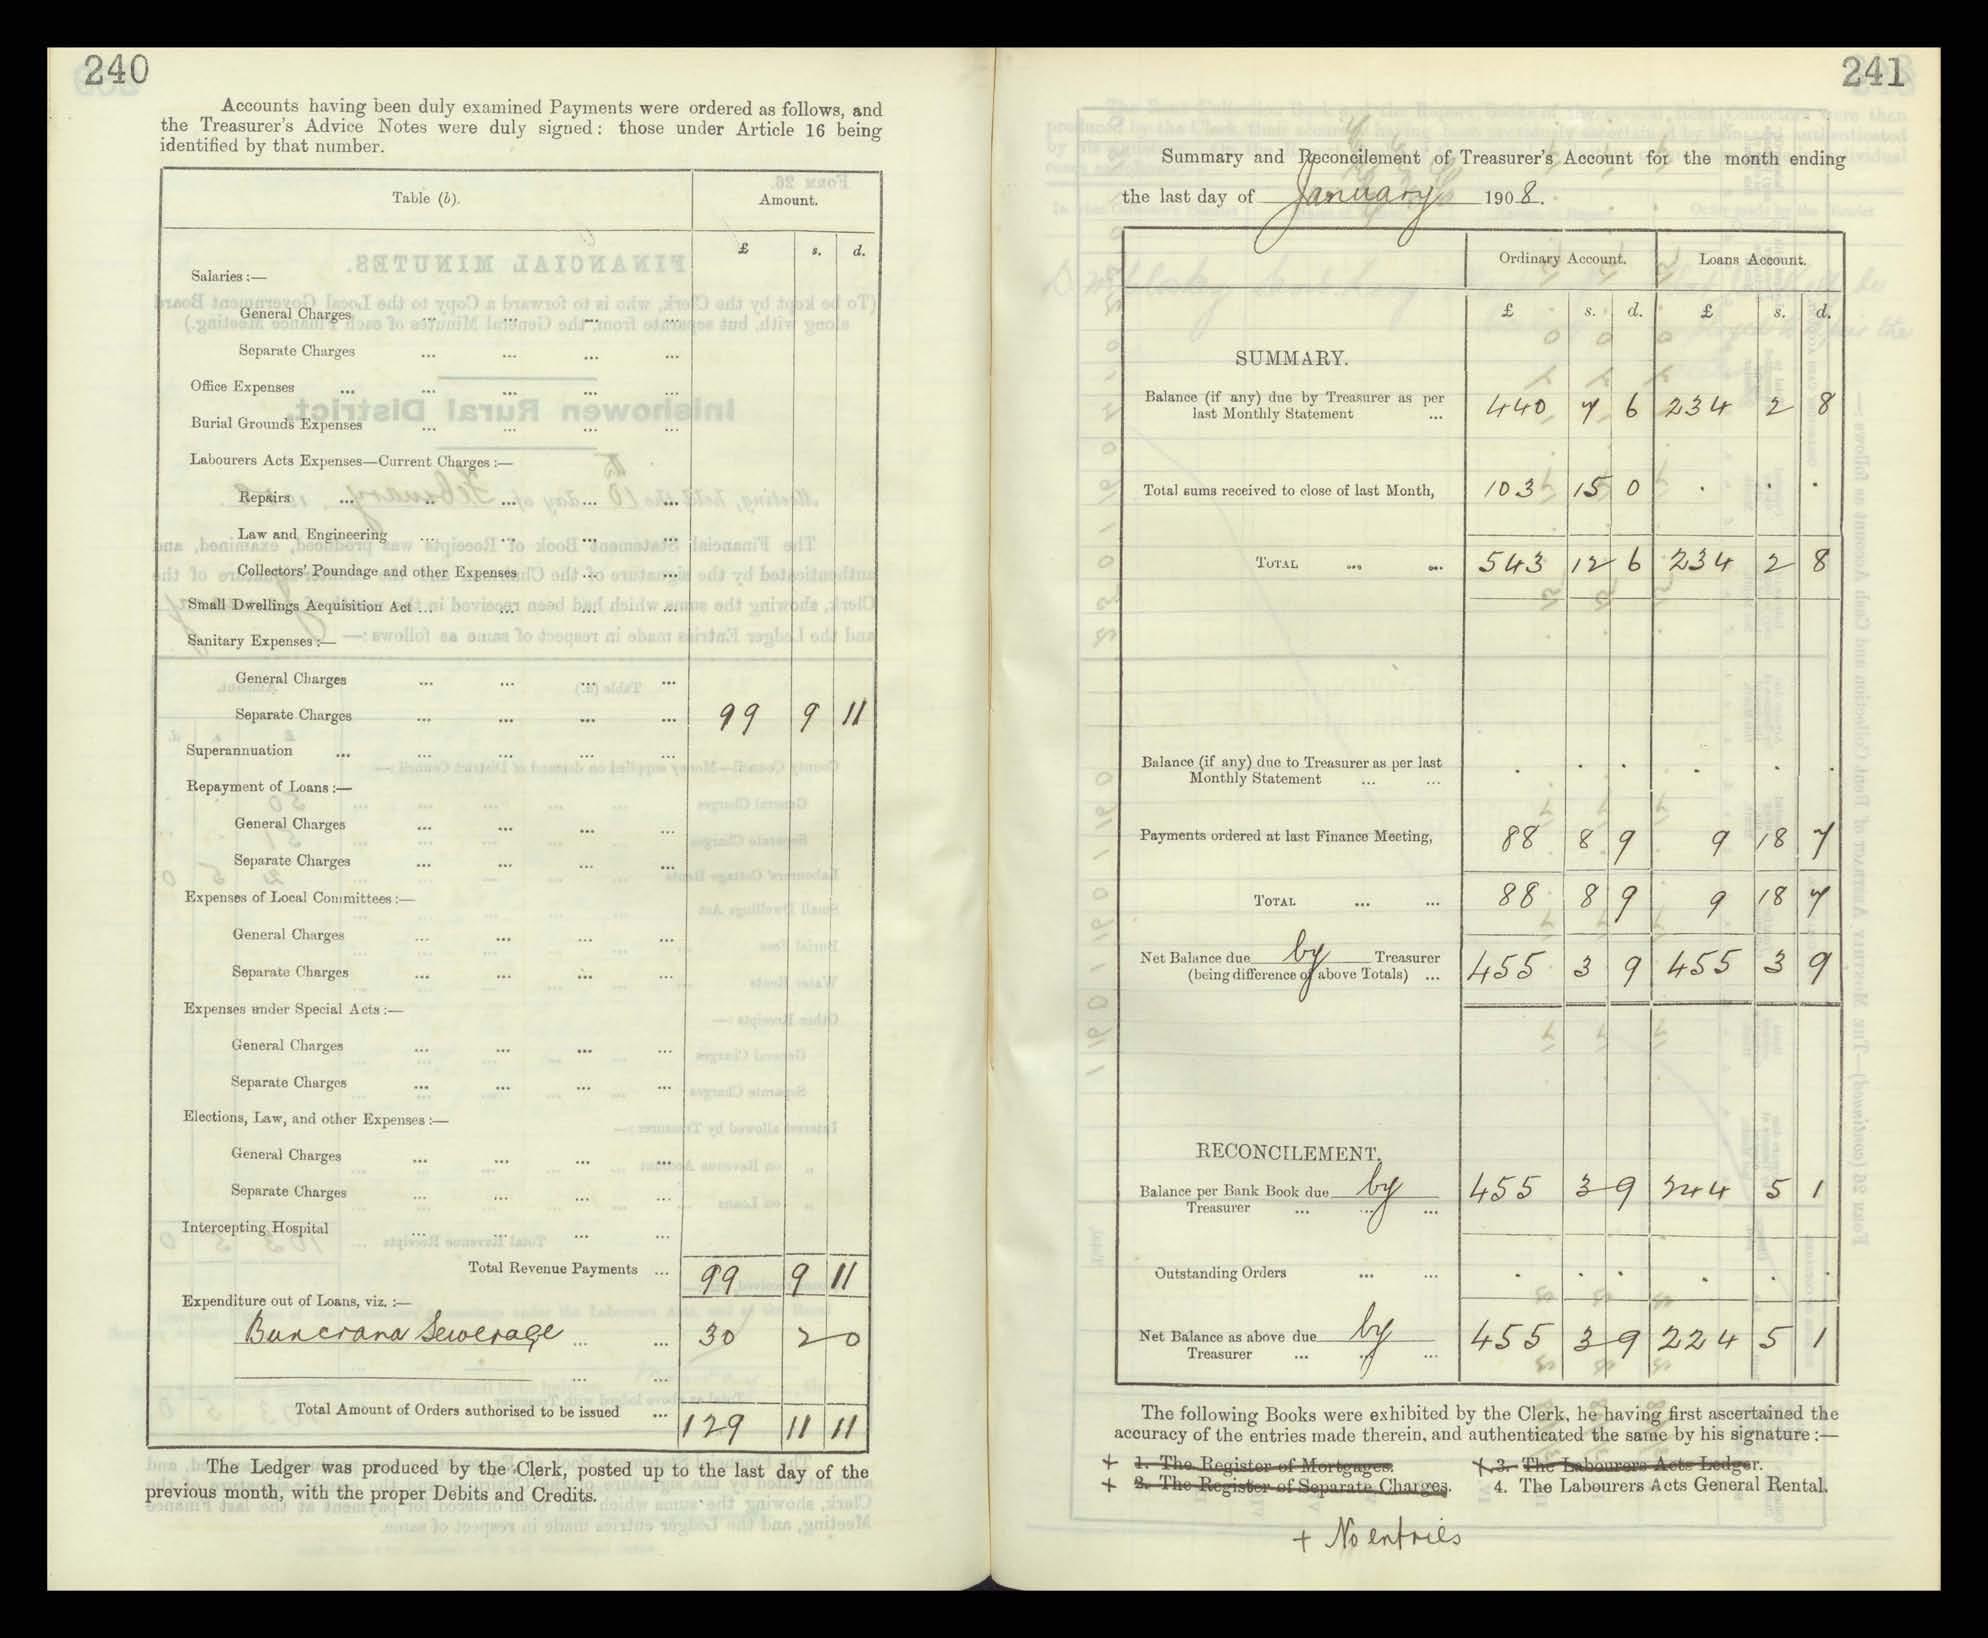 240
Accounts having been duly examined Payments were ordered as follows, and
the Treasurer's Advice Notes were duly signed: those under Article 16 being
identified by that number.
Table (b). Amount.
£ s. d.
Salaries:—
General Charges ... ... ... ...
Separate Charges ... ... ... ...
Office Expenses ... ... ... ... ...
Burial Grounds Expenses ... ... ... ...
Labourers Acts Expenses—Current Charges:—
Repairs ... ... ... ... ...
Law and Engineering ... ... ... ...
Collectors' Poundage and other Expenses ... ...
Small Dwellings Acquisition Act ... ... ... ...
Sanitary Expenses:—
General Charges ... ... ... ...
Separate Charges ... ... ... ... 99 9 11
Superannuation ... ... ... ... ...
Repayment of Loans:—
General Charges ... ... ... ...
Separate Charges ... ... ... ...
Expenses of Local Committees:—
General Charges ... ... ... ...
Separate Charges ... ... ... ...
Expenses under Special Acts:—
General Charges ... ... ... ...
Separate Charges ... ... ... ...
Elections, Law, and other Expenses:—
General Charges ... ... ... ...
Separate Charges ... ... ... ...
Intercepting Hospital ... ... ... ...
Total Revenue Payments ... 99 9 11
Expenditure out of Loans, viz.:—
Buncrana Sewerage ... ... 30 2 0
... ...
Total Amount of Orders authorised to be issued ... 129 11 11
The Ledger was produced by the Clerk, posted up to the last day of the
previous month, with the proper Debits and Credits.
241
Summary and Reconcilement of Treasurer's Account for the month ending
the last day of January 1908.
Ordinary Account. Loans Account.
£ s. d. £ s. d.
SUMMARY.
Balance (if any) due by Treasurer as per
last Monthly Statement ... 440 7 6 234 2 8
Total sums received to close of last Month, 103 15 0 . . .
TOTAL ... ... 543 12 6 234 2 8
Balance (if any) due to Treasurer as per last
Monthly Statement ... ... . . . . . .
Payments ordered at last Finance Meeting, 88 8 9 9 18 7
TOTAL ... ... 88 8 9 9 18 7
Net Balance due by Treasurer
(being difference of above Totals) ... 455 3 9 455 3 9
RECONCILEMENT.
Balance per Bank Book due by
Treasurer ... ... ... 455 3 9 244 5 1
Outstanding Orders ... ... . . . . . .
Net Balance as above due by
Treasurer ... ... ... 455 3 9 224 5 1
The following Books were exhibited by the Clerk, he having first ascertained the
accuracy of the entries made therein, and authenticated the same by his signature:—
+ 1. The Register of Mortgages. + 3. The Labourers Acts Ledger.
+ 2. The Register of Separate Charges. 4. The Labourers Acts General Rental.
+ No entries